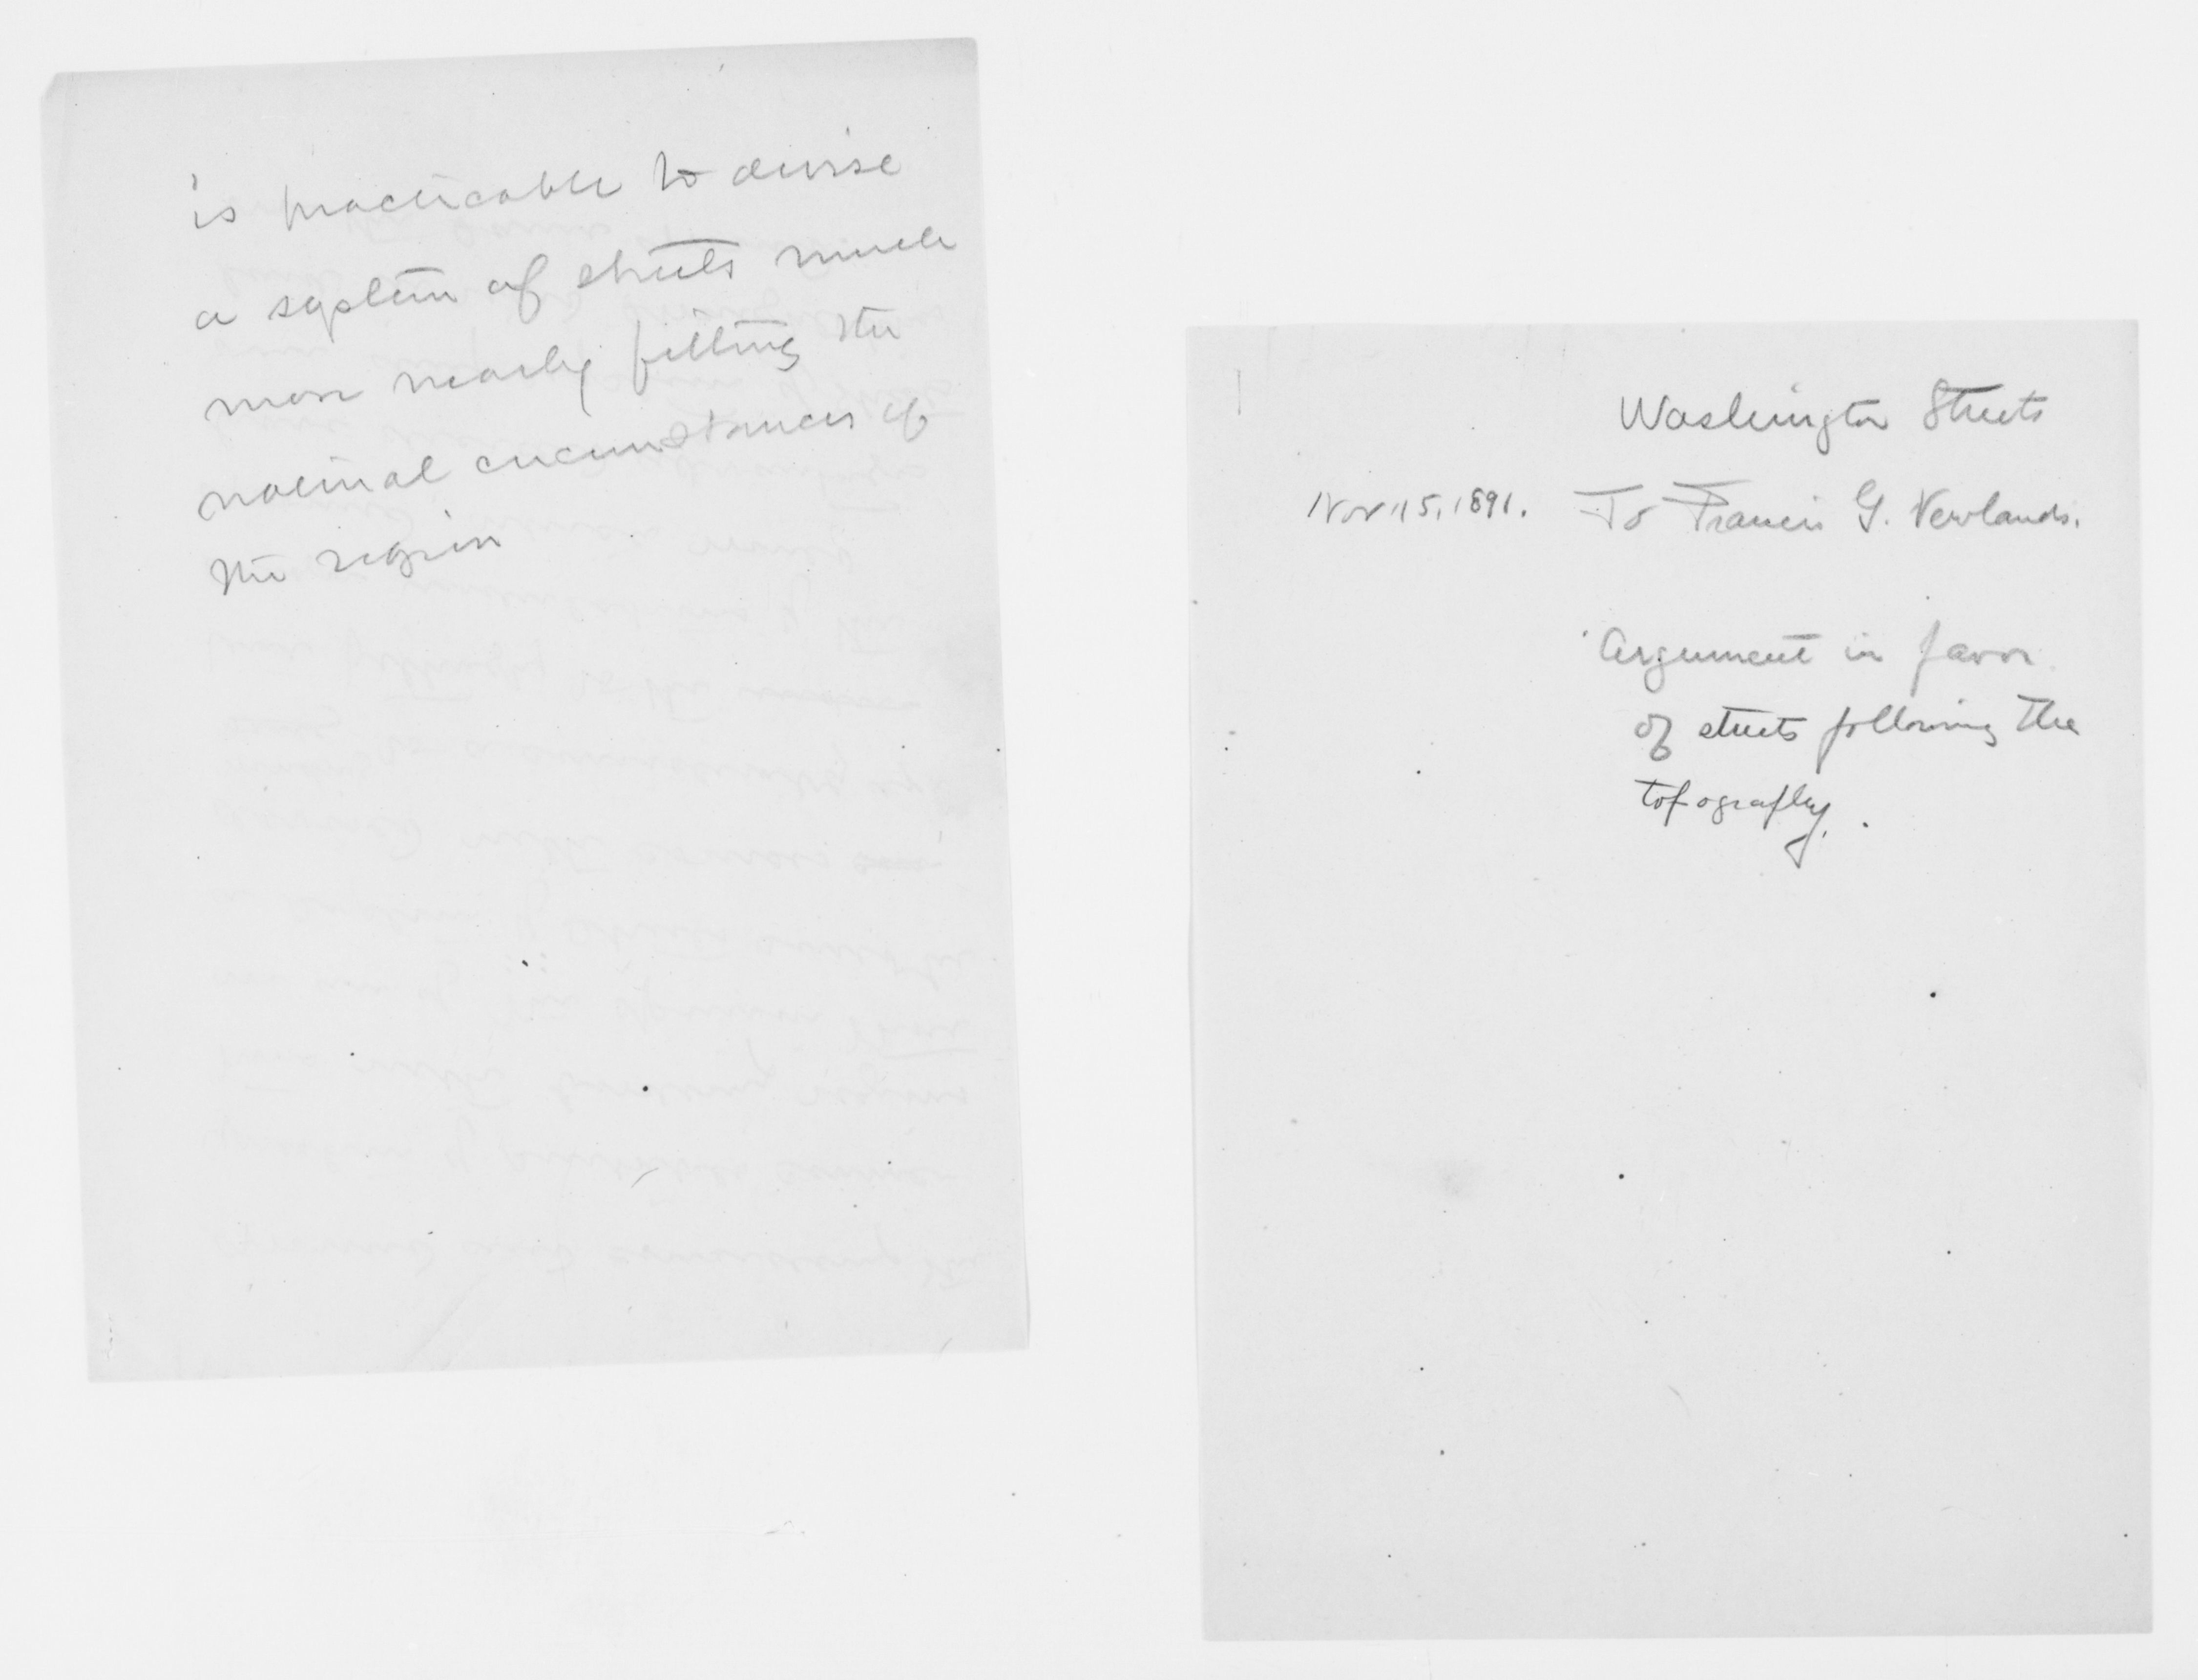 is practicable to devise
a system of streets much
more nearly fitting the
natural circumstances of
the region
Washington Streets
Nov 15, 1891. To Francis G. Newlands.
Argument in favor
of streets following the
topography.